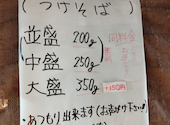 (つけそば)
並盛 200g
中盛 250g
大盛 350g +150円
・あつもり出来ます(お声がけ下さい)